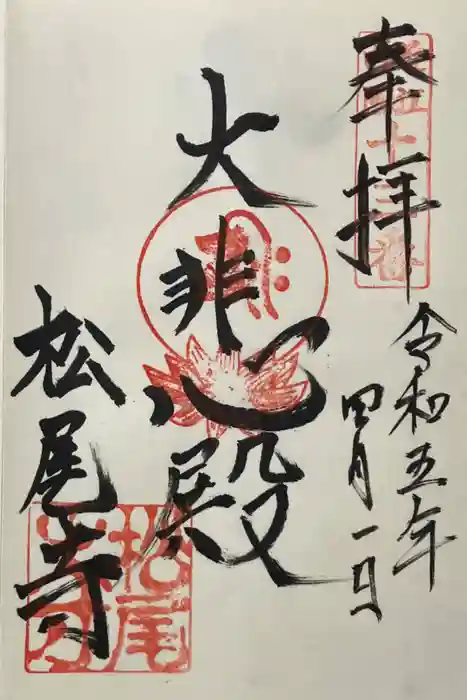 奉拝
令和五年
四月一日
大悲殿
松尾寺